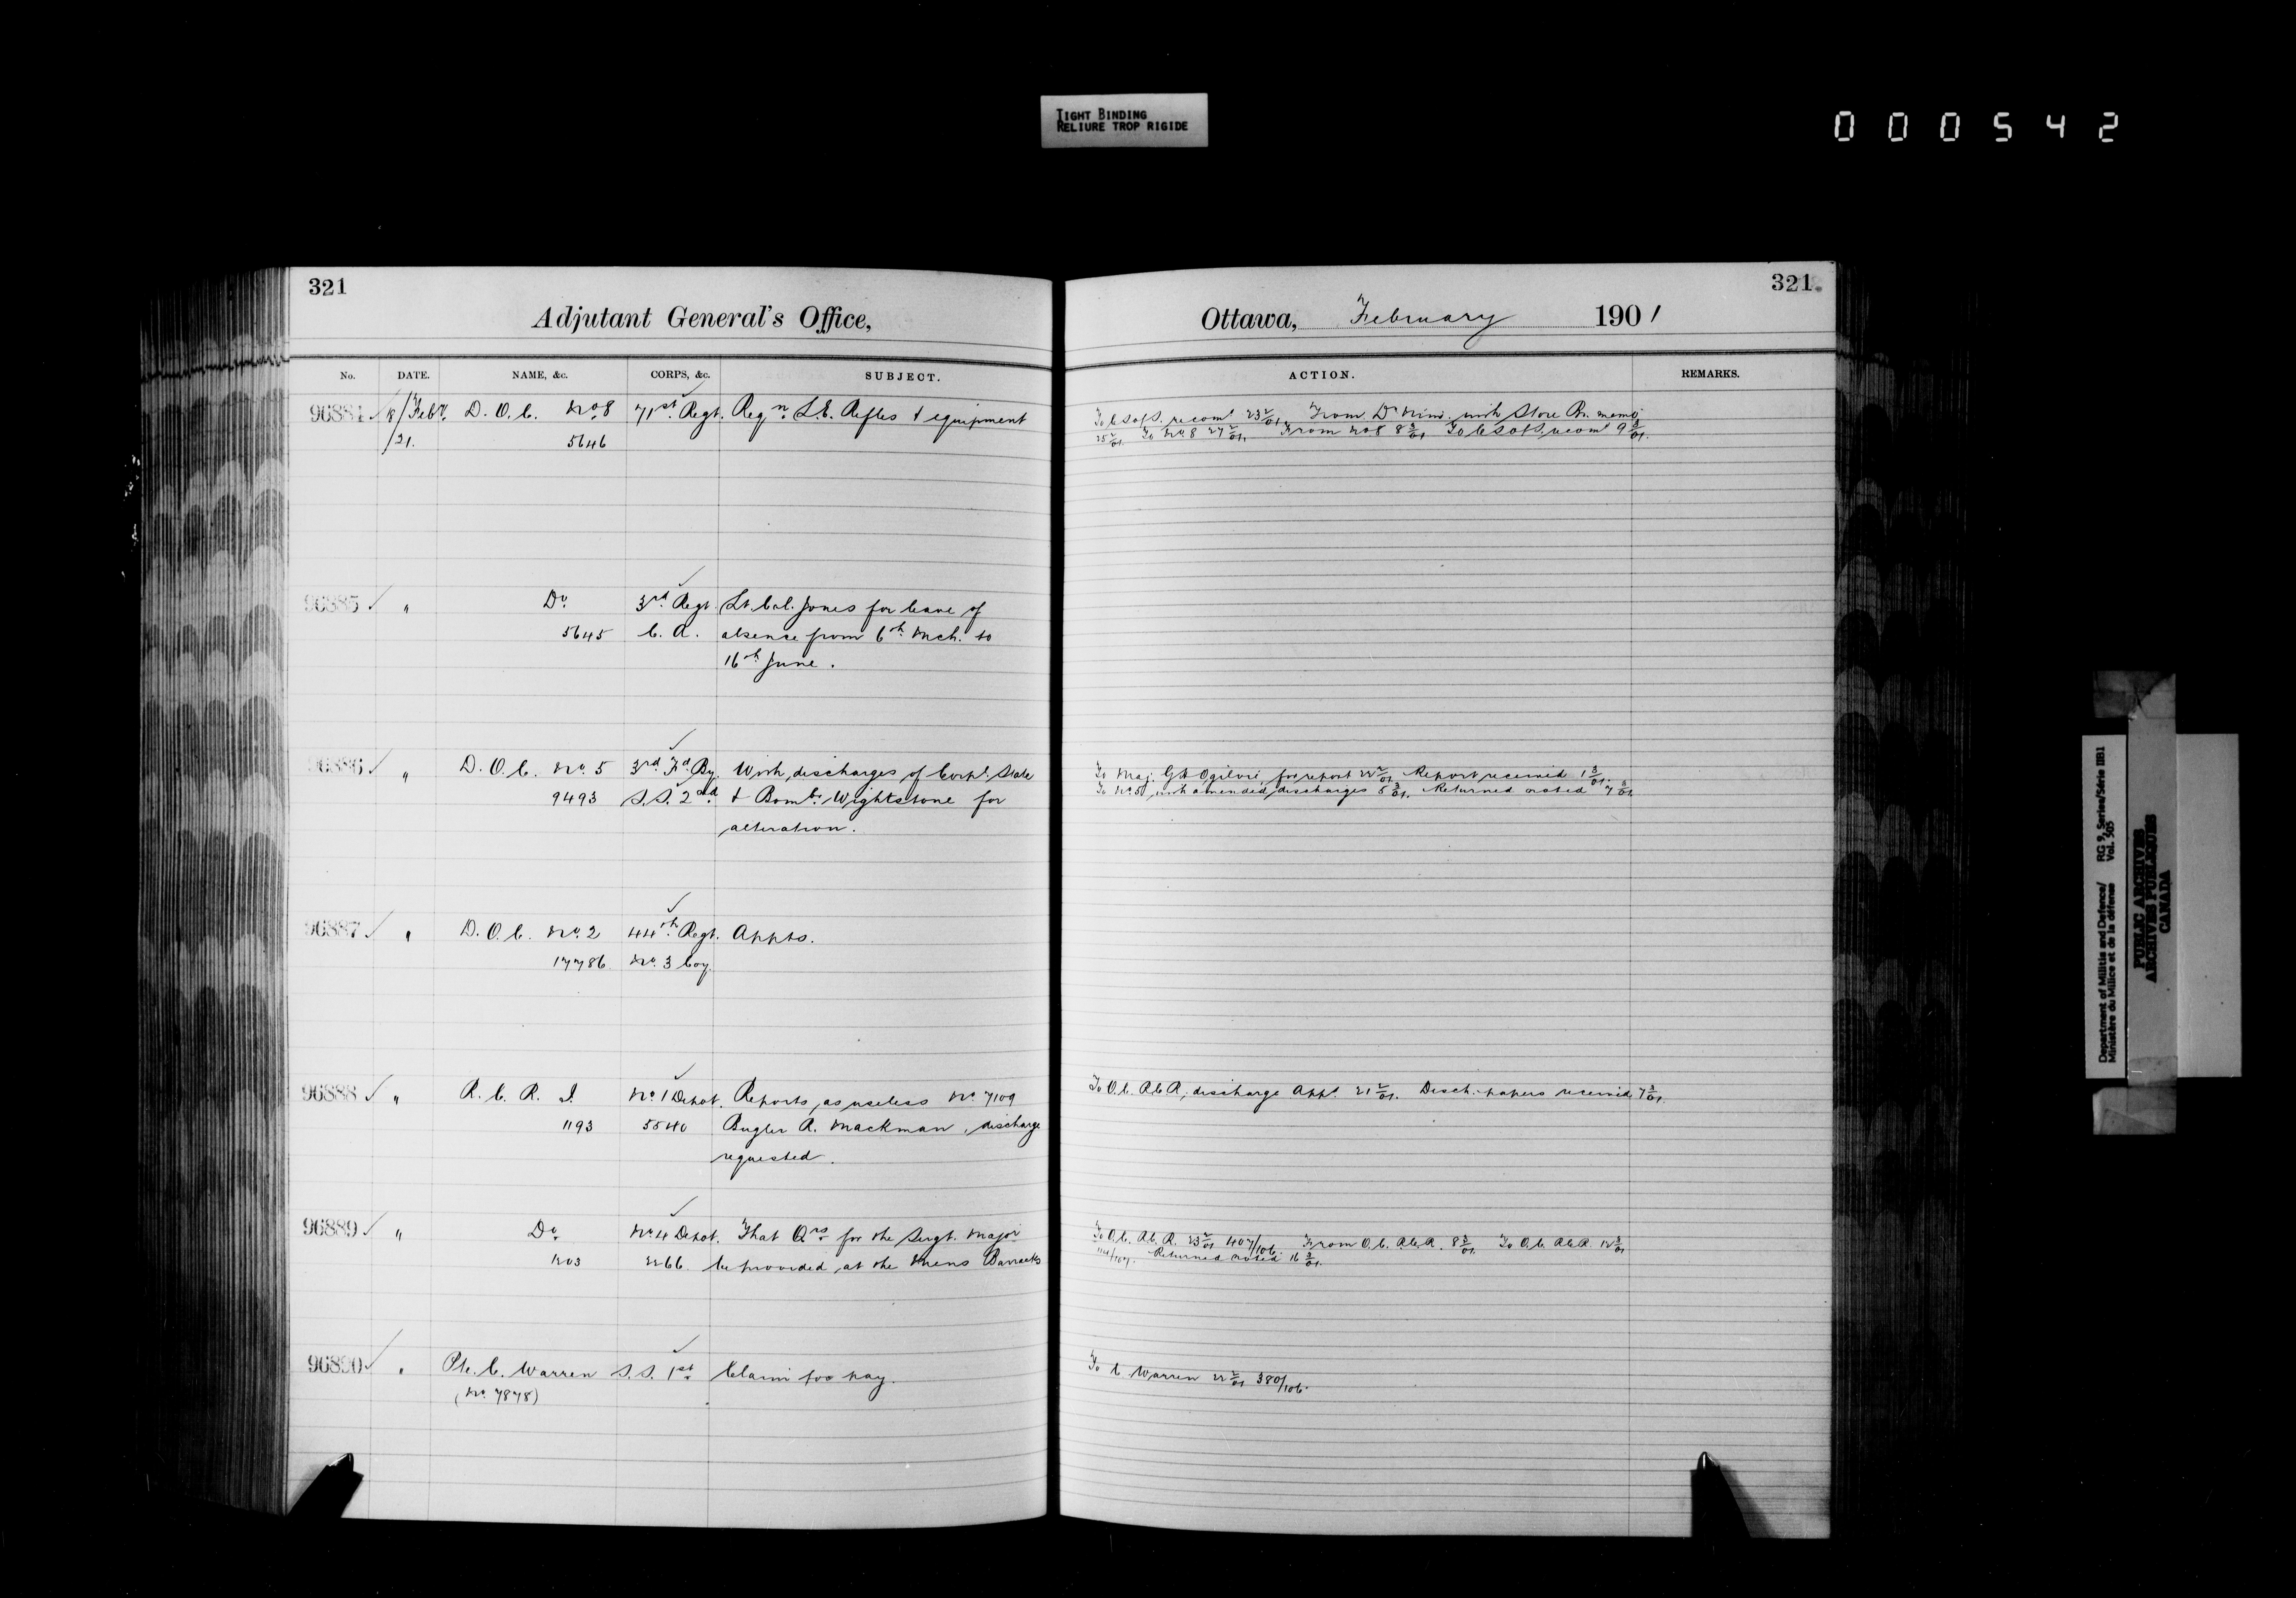 TIGHT BINDING
RELIURE TROP RIGIDE
000542
321
Adjutant General's Office,
No. DATE. NAME, &c. CORPS, &c. SUBJECT.
96884 18/Feby. D. O. C. No. 8 71st Regt. Reqn. L.E. Rifles & equipment
/21. 5646
96885 " Do. 3rd Regt. Lt. Col. Jones for leave of
5645 C. A. absence from 6th Mch. to
16th June.
96886 " D. O. C. No. 5 3rd Fd. By. With discharges of Corpl. Slate
9493 S.S. 2nd & Bombr. Wightstone for
alteration.
96887 " D. O. C. No. 2 44th Regt. Appts.
17786 No. 3 Coy.
96888 " R. C. R. I. No 1 Depot. Reports as useless No. 7109
1193 5540 Bugler A. Mackman, discharge
requested.
96889 " Do. No 4 Depot. That Qrs. for the Sergt. Major
1203 2266 be provided at the Mens Barracks
96890 " Pte. C. Warren S.S. 1st. Claim for pay.
(No. 7878)
321
Ottawa, February 1901
ACTION. REMARKS.
To C S of S. recomd. 23 2/01. From Dr. Mins. with Store Br. memo
25 2/01. To No. 8 27 2/01. From No 8 8 3/01 To C S of S. recomd 9 3/01.
To Maj. G H Ogilvie, for report 22 2/01. Report received 1 3/01.
To No. 5, with amended discharges 5 3/01. Returned noted 7 3/01.
To O.C. R C R, discharge Appd. 21 2/01. Disch. papers received 7 3/01.
To O.C. R.C.R. 23 2/01 407/106. From O.C. R.C.R. 8 3/01. To O.C. R C R. 12 3/01
Returned noted 16 3/01.
To C. Warren 22 2/01 380/106.
Department of Militia and Defence/ RG 9, Series/Série IIB1
Ministère du Milice et de la défense Vol. 505
PUBLIC ARCHIVES
ARCHIVES PUBLIQUES
CANADA